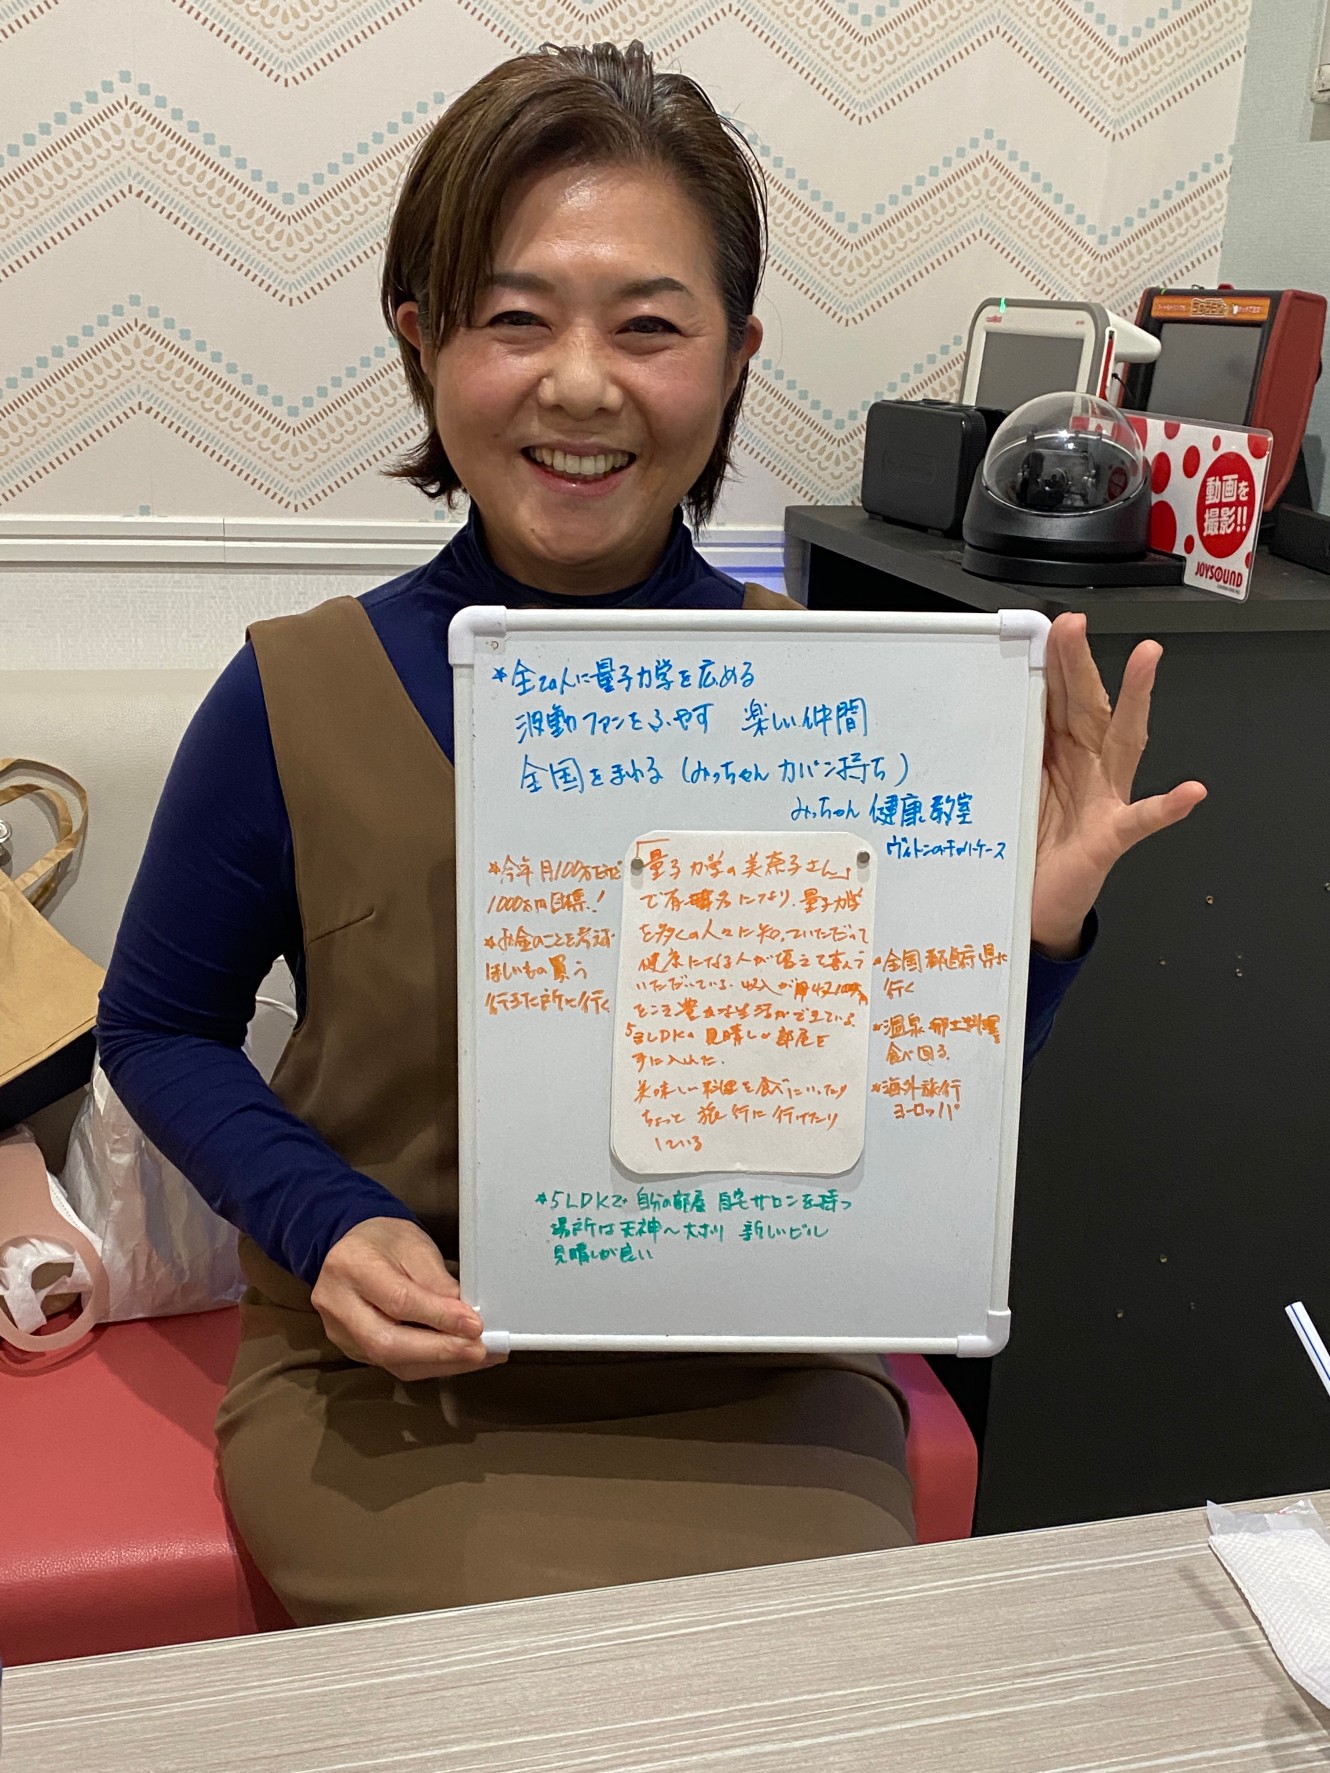 *全ての人に量子力学を広める
波動ファンをふやす 楽しい仲間
全国をまわる(みっちゃんカバン持ち)
みっちゃん健康教室
ヴィトンのキャリーケース
*今年月100万
1000万円目標!
*お金のことを考えず
ほしいもの買う
行きた所に行く
「量子力学の美奈子さん」
で有名になり、量子力学
を多くの人々に知っていただって
健康になる人が増えて喜んで
いただいている。収入が月収100万
をこえ豊かな生活ができている。
5LDKの見晴しの部屋を
手に入れた。
美味しい料理を食べにいったり
ちょっと旅行に行けたり
している
*全国都道府県に
行く
*温泉郷土料理
食べ回る
*海外旅行
ヨーロッパ
*5LDKで自分の部屋 自宅サロンを持つ
場所は天神〜大ホリ 新しいビル
見晴しが良い
動画を
撮影!!
JOYSOUND